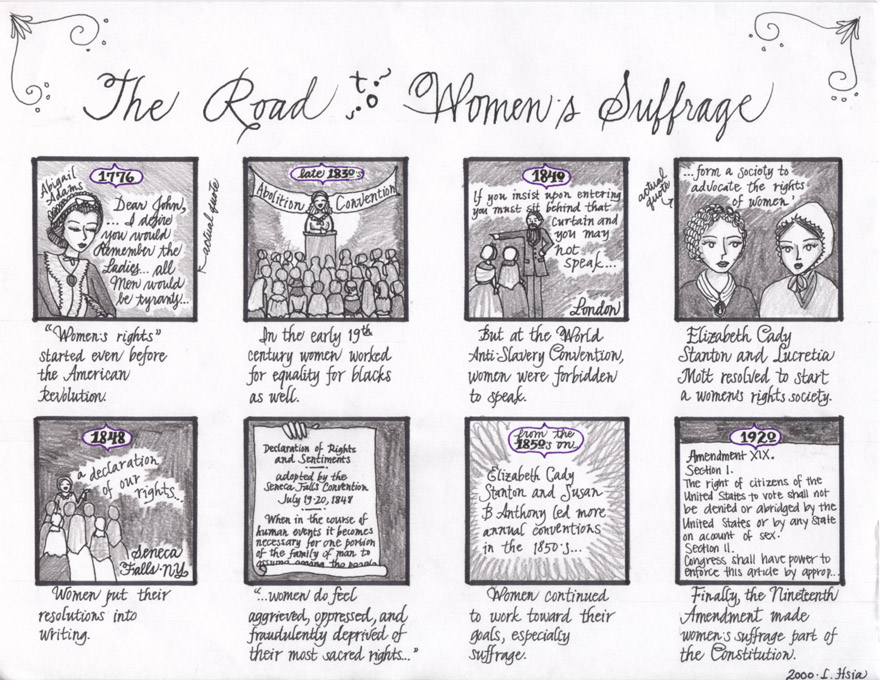 The Road to Women's Suffrage
Abigail
Adams
1776
Dear John,
... I desire
you would
Remember the
Ladies... all
Men would
be tyrants...
actual quote
"Women's rights"
started even before
the American
Revolution.
late 1830's
Abolition Convention
In the early 19th
century women worked
for equality for blacks
as well.
1840
If you insist upon entering
you must sit behind that
curtain and
you may
not
speak...
London
But at the World
Anti-Slavery Convention,
women were forbidden
to speak.
actual
quote
...form a society to
advocate the rights
of women.'
Elizabeth Cady
Stanton and Lucretia
Mott resolved to start
a women's rights society.
1848
a declaration
of our
rights...
Seneca
Falls·NY
Women put their
resolutions into
writing.
Declaration of Rights
and Sentiments
adopted by the
Seneca Falls Convention
July 19-20, 1848
When in the course of
human events it becomes
necessary for one portion
of the family of man to
assume among the people
"...women do feel
aggrieved, oppressed, and
fraudulently deprived of
their most sacred rights..."
from the
1850's on
Elizabeth Cady
Stanton and Susan
B Anthony led more
annual conventions
in the 1850's...
Women continued
to work toward their
goals, especially
suffrage.
1920
Amendment XIX.
Section I.
The right of citizens of the
United States to vote shall not
be denied or abridged by the
United States or by any State
on account of sex.
Section II.
Congress shall have power to
enforce this article by approp...
Finally, the Nineteenth
Amendment made
women's suffrage part of
the Constitution.
2000·I. Hsia